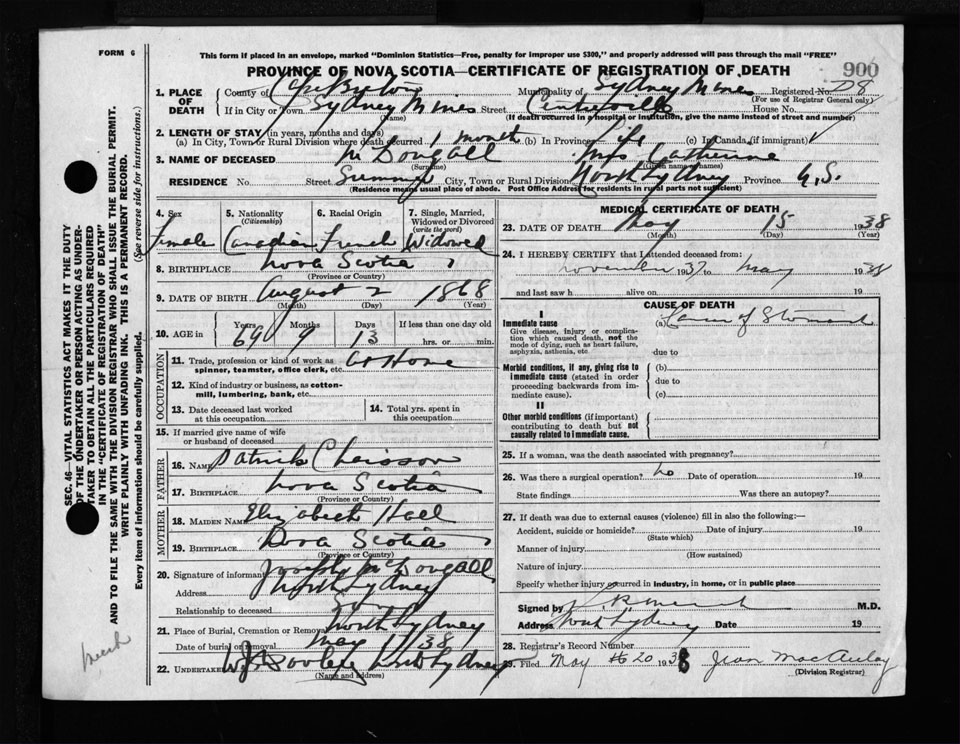 FORM 6
This form if placed in an envelope, marked "Dominion Statistics—Free, penalty for improper use $300," and properly addressed will pass through the mail "FREE"
900
PROVINCE OF NOVA SCOTIA—CERTIFICATE OF REGISTRATION OF DEATH
1. PLACE OF DEATH
County of Cape Breton Municipality of Sydney Mines Registered No. 28
(For use of Registrar General only)
If in City or Town Sydney Mines Street Centreville House No.
(Name) (If death occurred in a hospital or institution, give the name instead of street and number)
2. LENGTH OF STAY (in years, months and days)
(a) In City, Town or Rural Division where death occurred 1 month (b) In Province Life (c) In Canada (if immigrant)
3. NAME OF DECEASED McDougall Mrs Catherine
(Surname) (Given names)
RESIDENCE No. Street Summer City, Town or Rural Division North Sydney Province N.S.
(Residence means usual place of abode. Post Office Address for residents in rural parts not sufficient)
4. Sex
Female
5. Nationality (Citizenship)
Canadian
6. Racial Origin
French
7. Single, Married, Widowed or Divorced (write the word)
Widowed
8. BIRTHPLACE Nova Scotia
(Province or Country)
9. DATE OF BIRTH August 2 1868
(Month) (Day) (Year)
10. AGE in Years Months Days If less than one day old
69 9 13 hrs. or min.
OCCUPATION
11. Trade, profession or kind of work as spinner, teamster, office clerk, etc. At Home
12. Kind of industry or business, as cotton-mill, lumbering, bank, etc.
13. Date deceased last worked at this occupation
14. Total yrs. spent in this occupation
15. If married give name of wife or husband of deceased
FATHER
16. NAME Patrick Chiasson
17. BIRTHPLACE Nova Scotia
(Province or Country)
MOTHER
18. MAIDEN NAME Elizabeth Hall
19. BIRTHPLACE Nova Scotia
(Province or Country)
20. Signature of informant Joseph McDougall
Address North Sydney
Relationship to deceased Son
21. Place of Burial, Cremation or Removal North Sydney
Date of burial or removal May 17/38
22. UNDERTAKER W.J. Dooley North Sydney
(Name and address)
MEDICAL CERTIFICATE OF DEATH
23. DATE OF DEATH May 15 1938
(Month) (Day) (Year)
24. I HEREBY CERTIFY that I attended deceased from:
November 1937 to May 1938
and last saw h alive on 19
CAUSE OF DEATH
I
Immediate cause
Give disease, injury or complication which caused death, not the mode of dying, such as heart failure, asphyxia, asthenia, etc.
(a) Cancer of Stomach
due to
Morbid conditions, if any, giving rise to immediate cause (stated in order proceeding backwards from immediate cause).
(b)
due to
(c)
II
Other morbid conditions (if important) contributing to death but not causally related to immediate cause.
25. If a woman, was the death associated with pregnancy?
26. Was there a surgical operation? no Date of operation 19
State findings Was there an autopsy?
27. If death was due to external causes (violence) fill in also the following:—
Accident, suicide or homicide? Date of injury 19
(State which)
Manner of injury
(How sustained)
Nature of injury
Specify whether injury occurred in industry, in home, or in public place
Signed by M.D.
Address North Sydney Date 19
28. Registrar's Record Number
29. Filed May 20 1938 Jean MacAulay
(Division Registrar)
SEC. 46—VITAL STATISTICS ACT MAKES IT THE DUTY
OF THE UNDERTAKER OR PERSON ACTING AS UNDER-
TAKER TO OBTAIN ALL THE PARTICULARS REQUIRED
IN THE "CERTIFICATE OF REGISTRATION OF DEATH"
AND TO FILE THE SAME WITH THE DIVISION REGISTRAR WHO SHALL ISSUE THE BURIAL PERMIT.
WRITE PLAINLY WITH UNFADING INK. THIS IS A PERMANENT RECORD.
Every item of information should be carefully supplied. (See reverse side for instructions.)